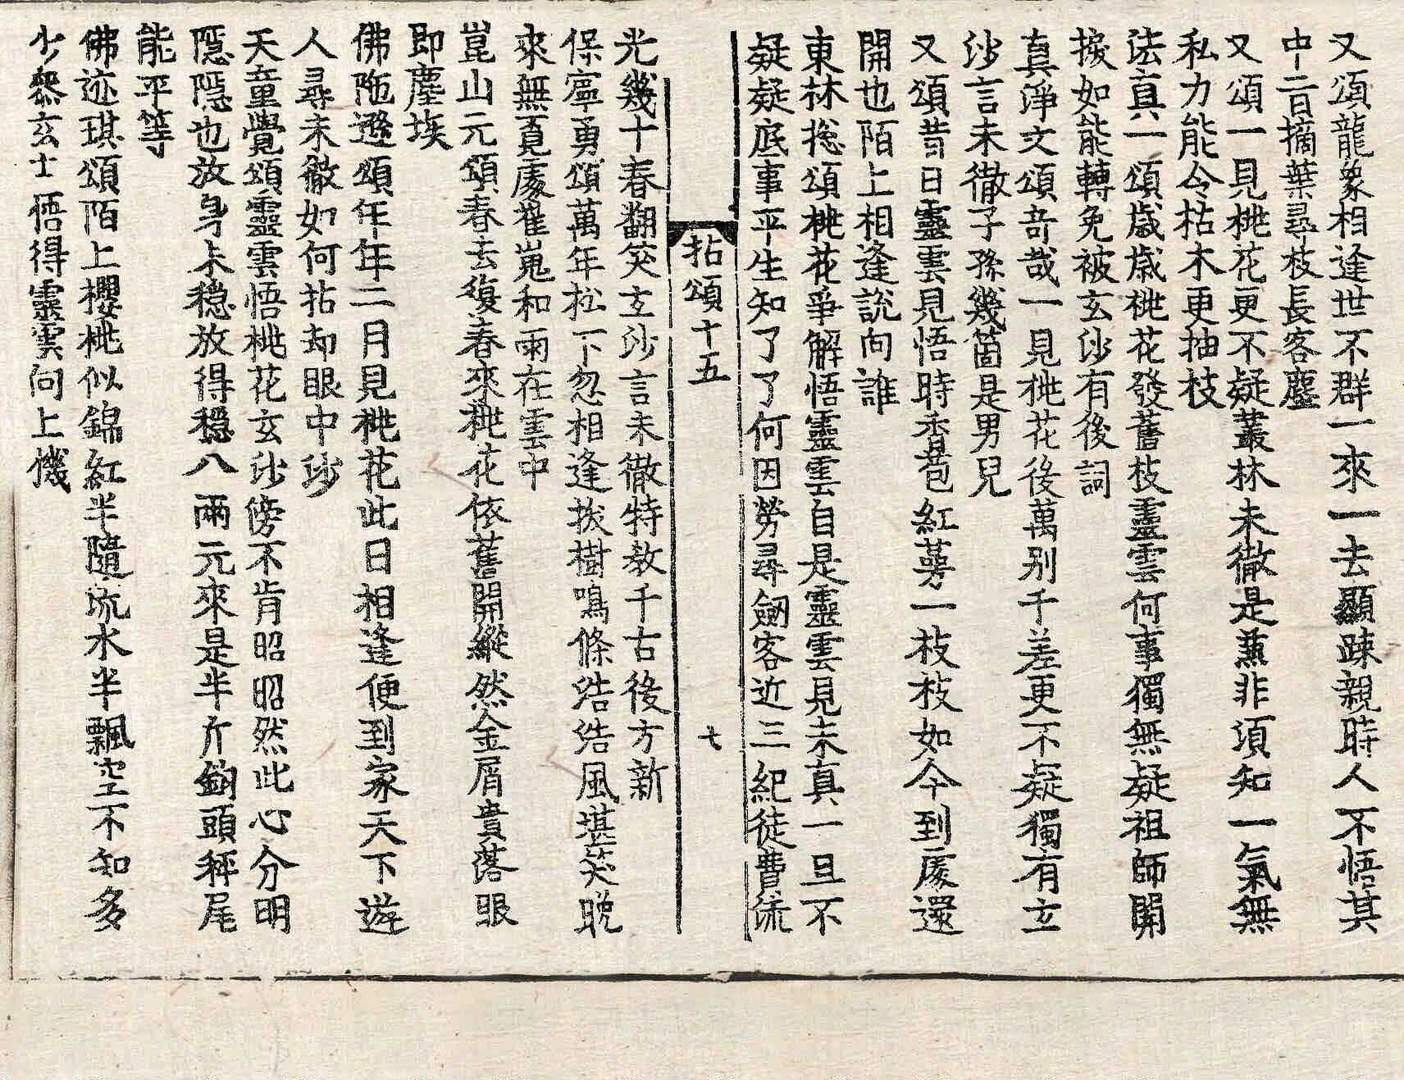 又頌龍象相逢世不群一來一去顯踈親時人不悟其
中二日摘葉尋枝長客塵
又頌一見桃花更不疑叢林未徹是兼非須知一氣無
私力能令枯木更抽枝
法真一頌歲歲桃花發舊枝靈雲何事獨無疑祖師關
捩如能轉免被玄沙有後詞
真淨文頌奇哉一見桃花後萬别千差更不疑獨有玄
沙言未徹子孫幾箇是男兒
又頌昔日靈雲見悟時香苞紅萼一枝枝如今到處還
開也陌上相逢說向誰
東林揔頌桃花爭解悟靈雲自是靈雲見未真一旦不
疑疑底事平生知了了何因勞尋劒客近三紀徒費流
拈頌十五
七
光幾十春翻笑玄沙言未徹特教千古後方新
保寧勇頌萬年松下忽相逢拔樹鳴條浩浩風堪笑晚
來無覓處崔嵬和雨在雲中
崑山元頌春去復春來桃花依舊開縱然金屑貴落眼
即塵埃
佛陁遜頌年年二月見桃花此日相逢便到家天下遊
人尋未徹如何拈却眼中沙
天童覺頌靈雲悟桃花玄沙傍不肯昭昭然此心分明
隱隱也放身未穩放得穩八兩元來是半斤鉤頭秤尾
能平等
佛迹琪頌陌上櫻桃似錦紅半隨流水半飄空不知多
少叅玄士悟得靈雲向上機